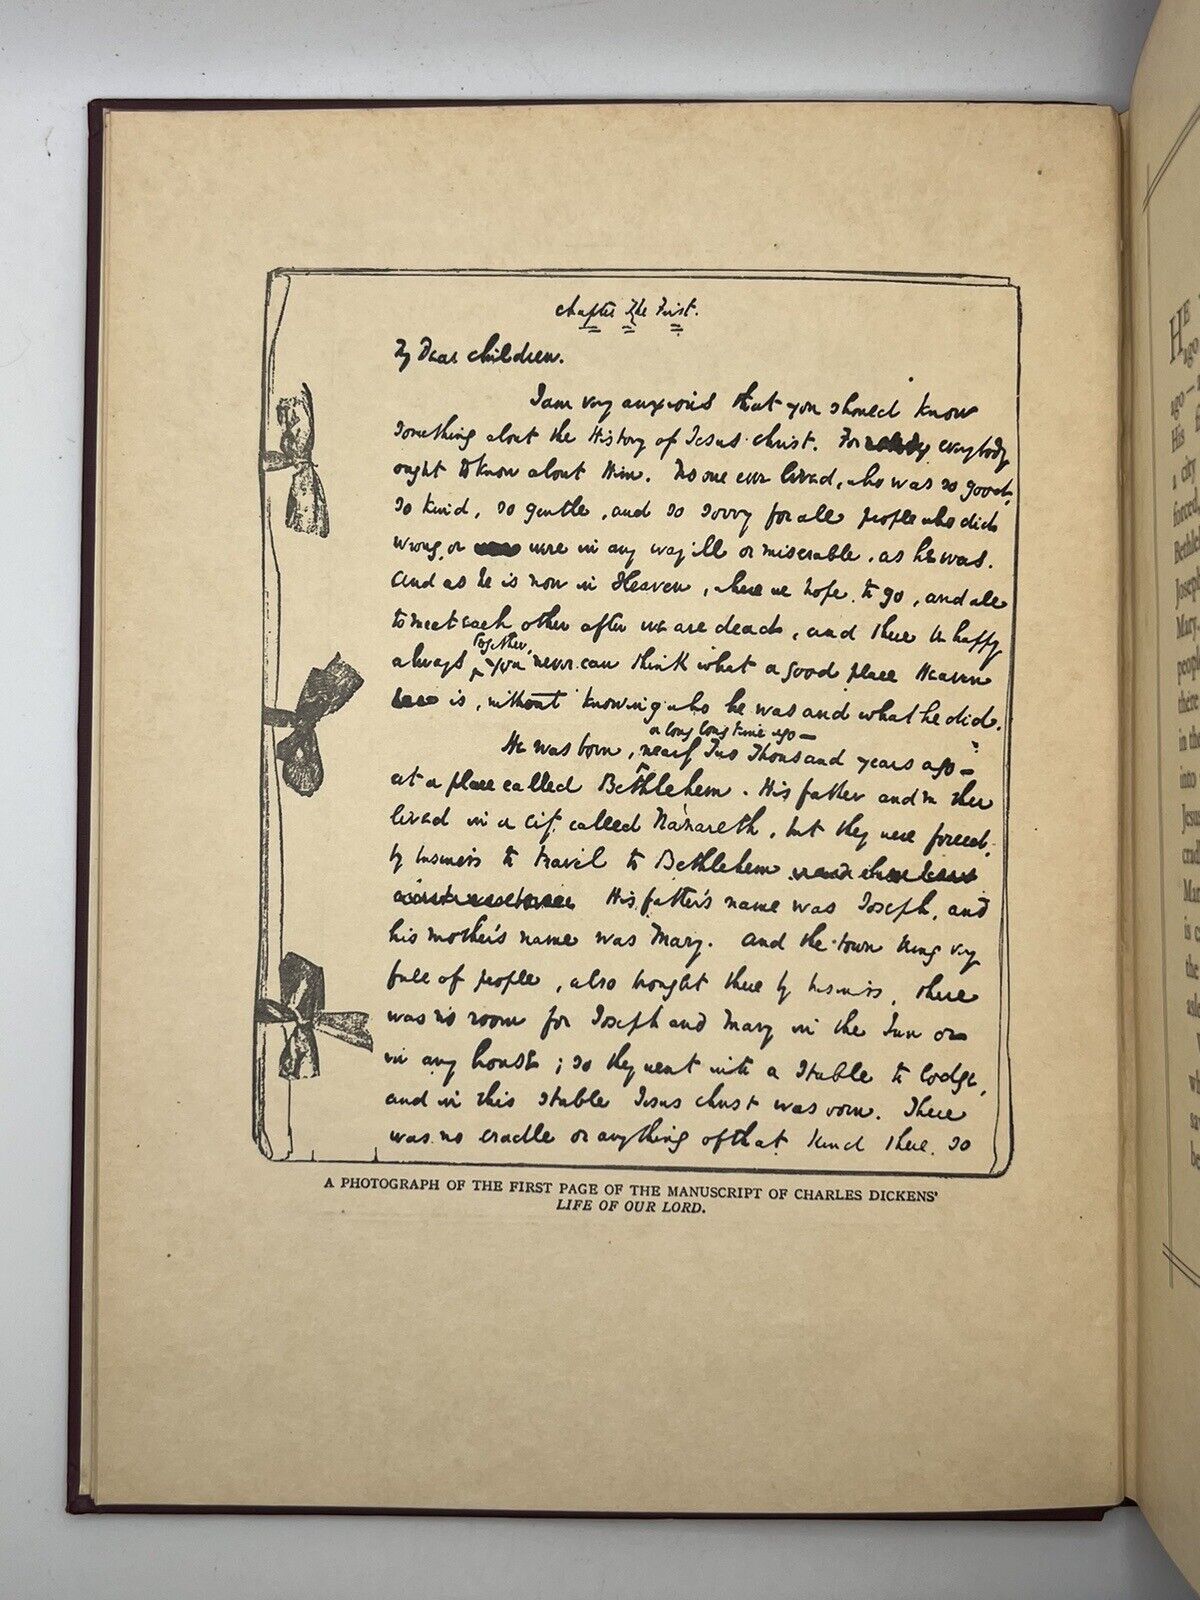 Chapter The First.
My Dear Children.
I am very anxious that you should know
something about the History of Jesus Christ. For everybody
ought to know about Him. No one ever lived, who was so good,
so kind, so gentle, and so sorry for all people who did
wrong, or were in any way ill or miserable, as he was.
And as he is now in Heaven, where we hope to go, and all
to meet each other after we are dead, and there be happy
together,
always you never can think what a good place Heaven
is, without knowing who he was and what he did.
a long long time ago —
He was born, nearly Two Thousand years ago —
at a place called Bethlehem. His father and mother
lived in a city called Nazareth, but they were forced,
by business to travel to Bethlehem
His father's name was Joseph, and
his mother's name was Mary. And the town being very
full of people, also brought there by business, there
was no room for Joseph and Mary in the Inn or
in any house; so they went into a Stable to lodge,
and in this stable Jesus Christ was born. There
was no cradle or anything of that kind there, so
A PHOTOGRAPH OF THE FIRST PAGE OF THE MANUSCRIPT OF CHARLES DICKENS'
LIFE OF OUR LORD.
HE
ago
ago —
His
a city
forced,
Bethle
Joseph
Mary
people
there
in the
into
Jesus
cradl
Mar
is c
the